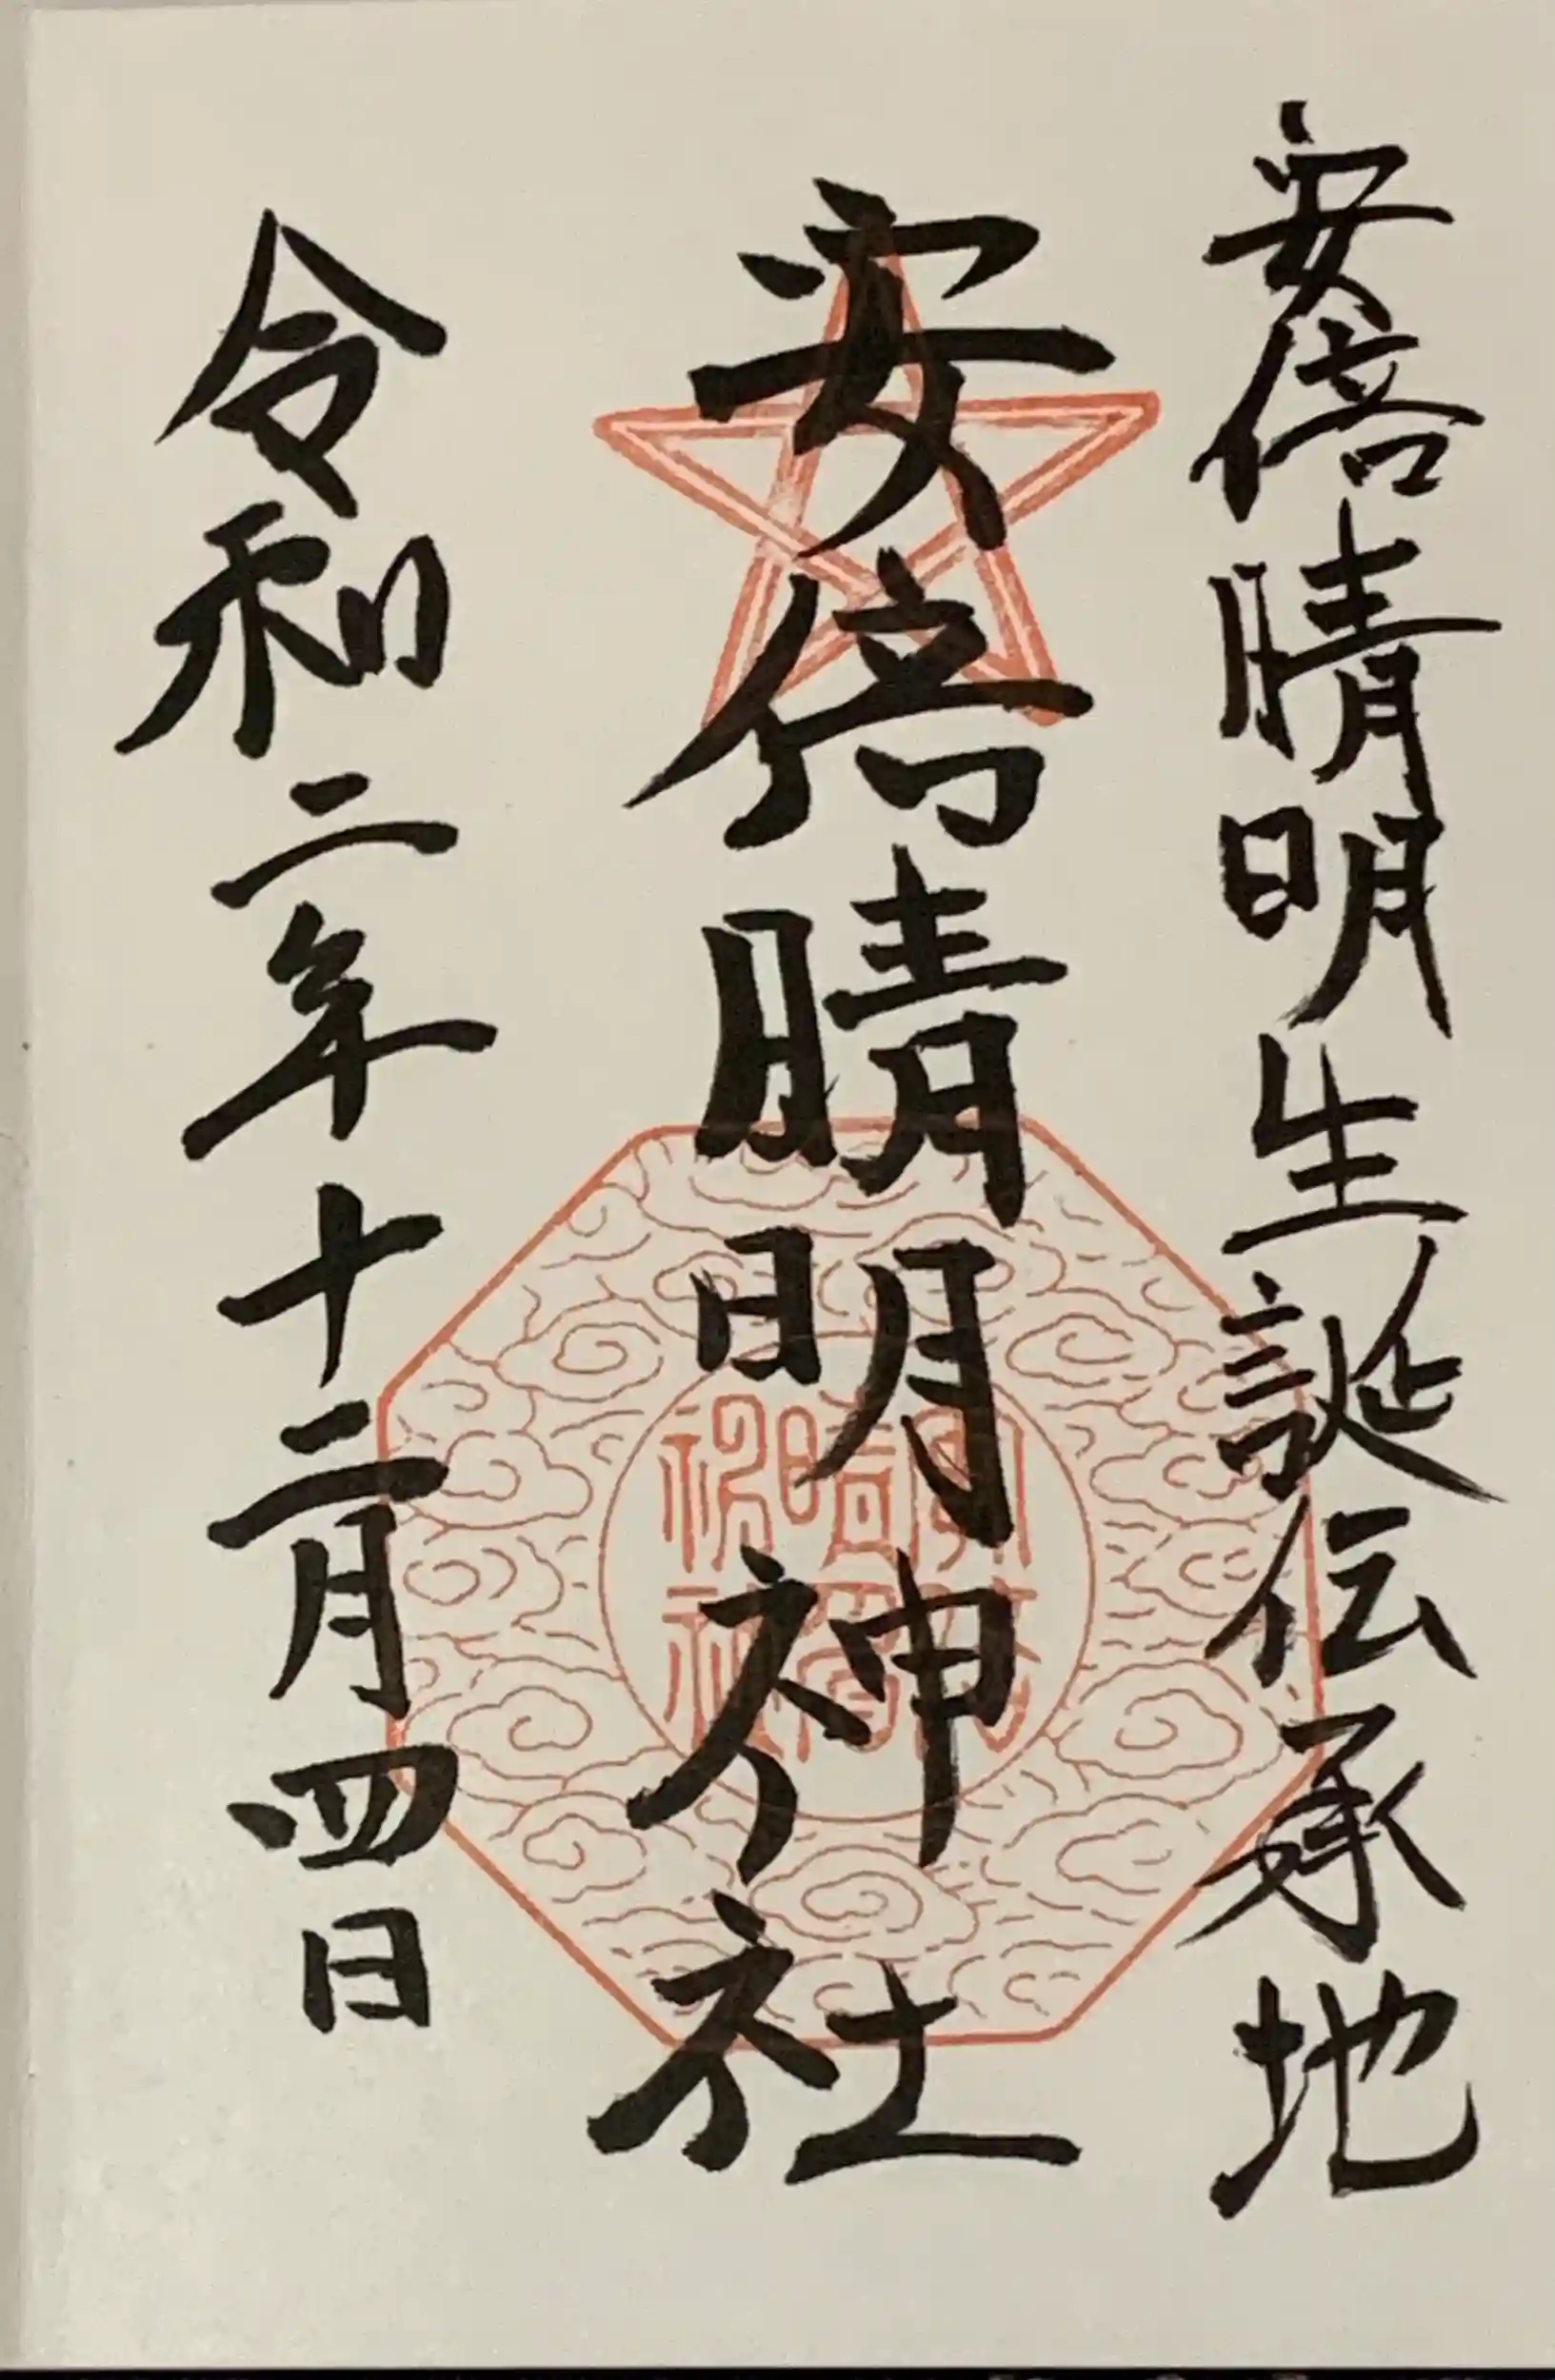 安倍晴明生誕伝承地
安倍晴明神社
令和二年十二月四日